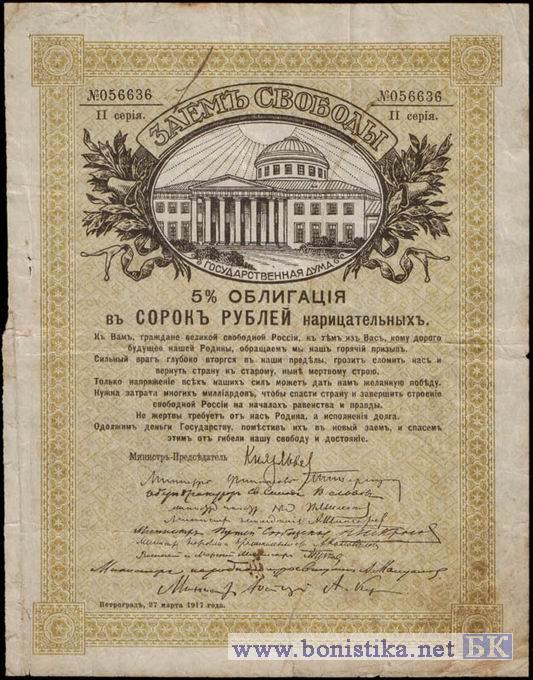 №056636 №056636
II серія. II серія.
ЗАЕМЪ СВОБОДЫ
ГОСУДАРСТВЕННАЯ ДУМА
5% ОБЛИГАЦІЯ
въ СОРОКЪ РУБЛЕЙ нарицательныхъ.
Къ Вамъ, граждане великой свободной Россіи, къ тѣмъ изъ Васъ, кому дорого
будущее нашей Родины, обращаемъ мы нашъ горячій призывъ.
Сильный врагъ глубоко вторгся въ наши предѣлы, грозитъ сломить насъ и
вернуть страну къ старому, нынѣ мертвому строю.
Только напряженіе всѣхъ нашихъ силъ можетъ дать намъ желанную побѣду.
Нужна затрата многихъ милліардовъ, чтобы спасти страну и завершить строеніе
свободной Россіи на началахъ равенства и правды.
Не жертвы требуетъ отъ насъ Родина, а исполненія долга.
Одолжимъ деньги Государству, помѣстивъ ихъ въ новый заемъ, и спасемъ
этимъ отъ гибели нашу свободу и достояніе.
Министръ-Предсѣдатель Князь Львов
Министръ финансовъ Терещенко
Министръ земледѣлія А. Шингарев
Министръ Путей Сообщенія Некрасов
Министръ народнаго просвѣщенія А. Мануйлов
Министръ Юстиціи А. Кер
Петроградъ, 27 марта 1917 года.
www.bonistika.net БК